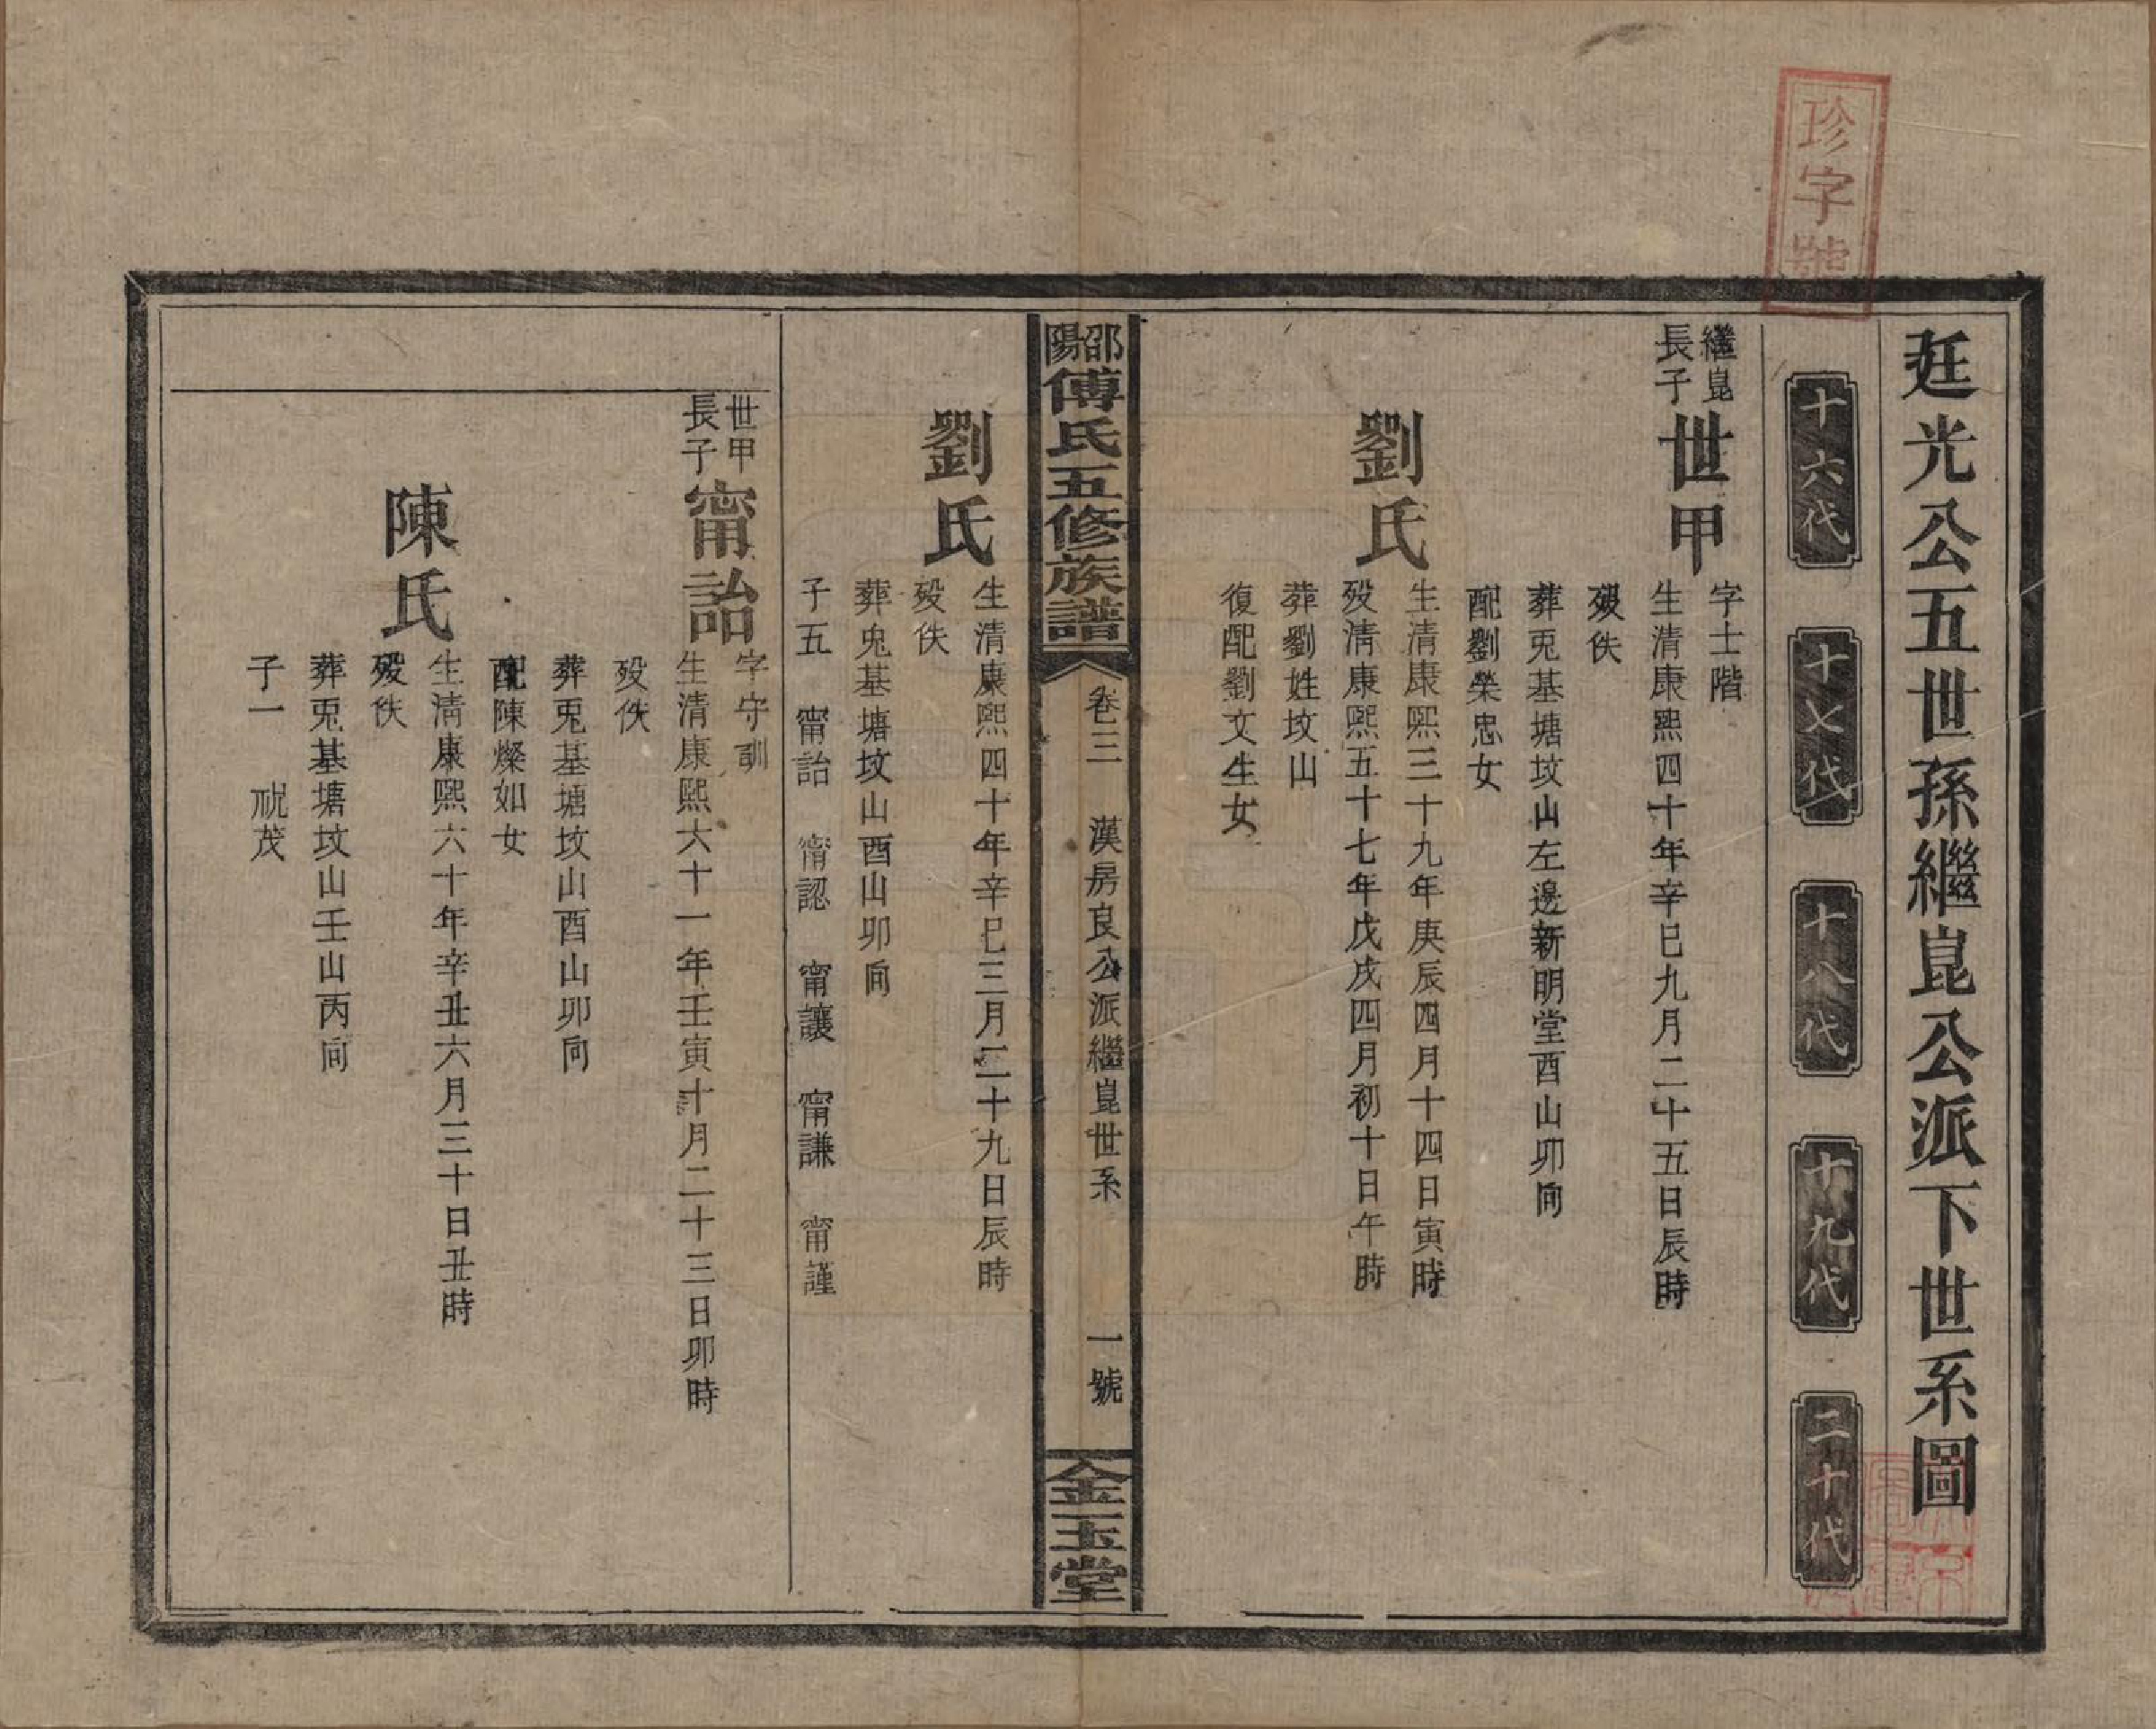 珍字號
廷光公五世孫繼崑公派下世系圖
十六代
十七代
十八代
十九代
二十代
繼崑
長子
世甲
字士階
生清康熙四十年辛巳九月二十五日辰時
歿佚
葬兎基塘坟山左邊新明堂酉山卯向
配劉榮忠女
劉氏
生清康熙三十九年庚辰四月十四日寅時
歿清康熙五十七年戊戌四月初十日午時
葬劉姓坟山
復配劉文生女
邵陽傅氏五修族譜
卷三 漢房良公派繼崑世系 一號
金玉堂
劉氏
生清康熙四十年辛巳三月二十九日辰時
歿佚
葬兎基塘坟山酉山卯向
子五 甯詒 甯認 甯讓 甯謙 甯謹
世甲
長子
甯詒
字守訓
生清康熙六十一年壬寅十月二十三日卯時
歿佚
葬兎基塘坟山酉山卯向
配陳燦如女
陳氏
生清康熙六十年辛丑六月三十日丑時
歿佚
葬兎基塘坟山壬山丙向
子一 祝茂